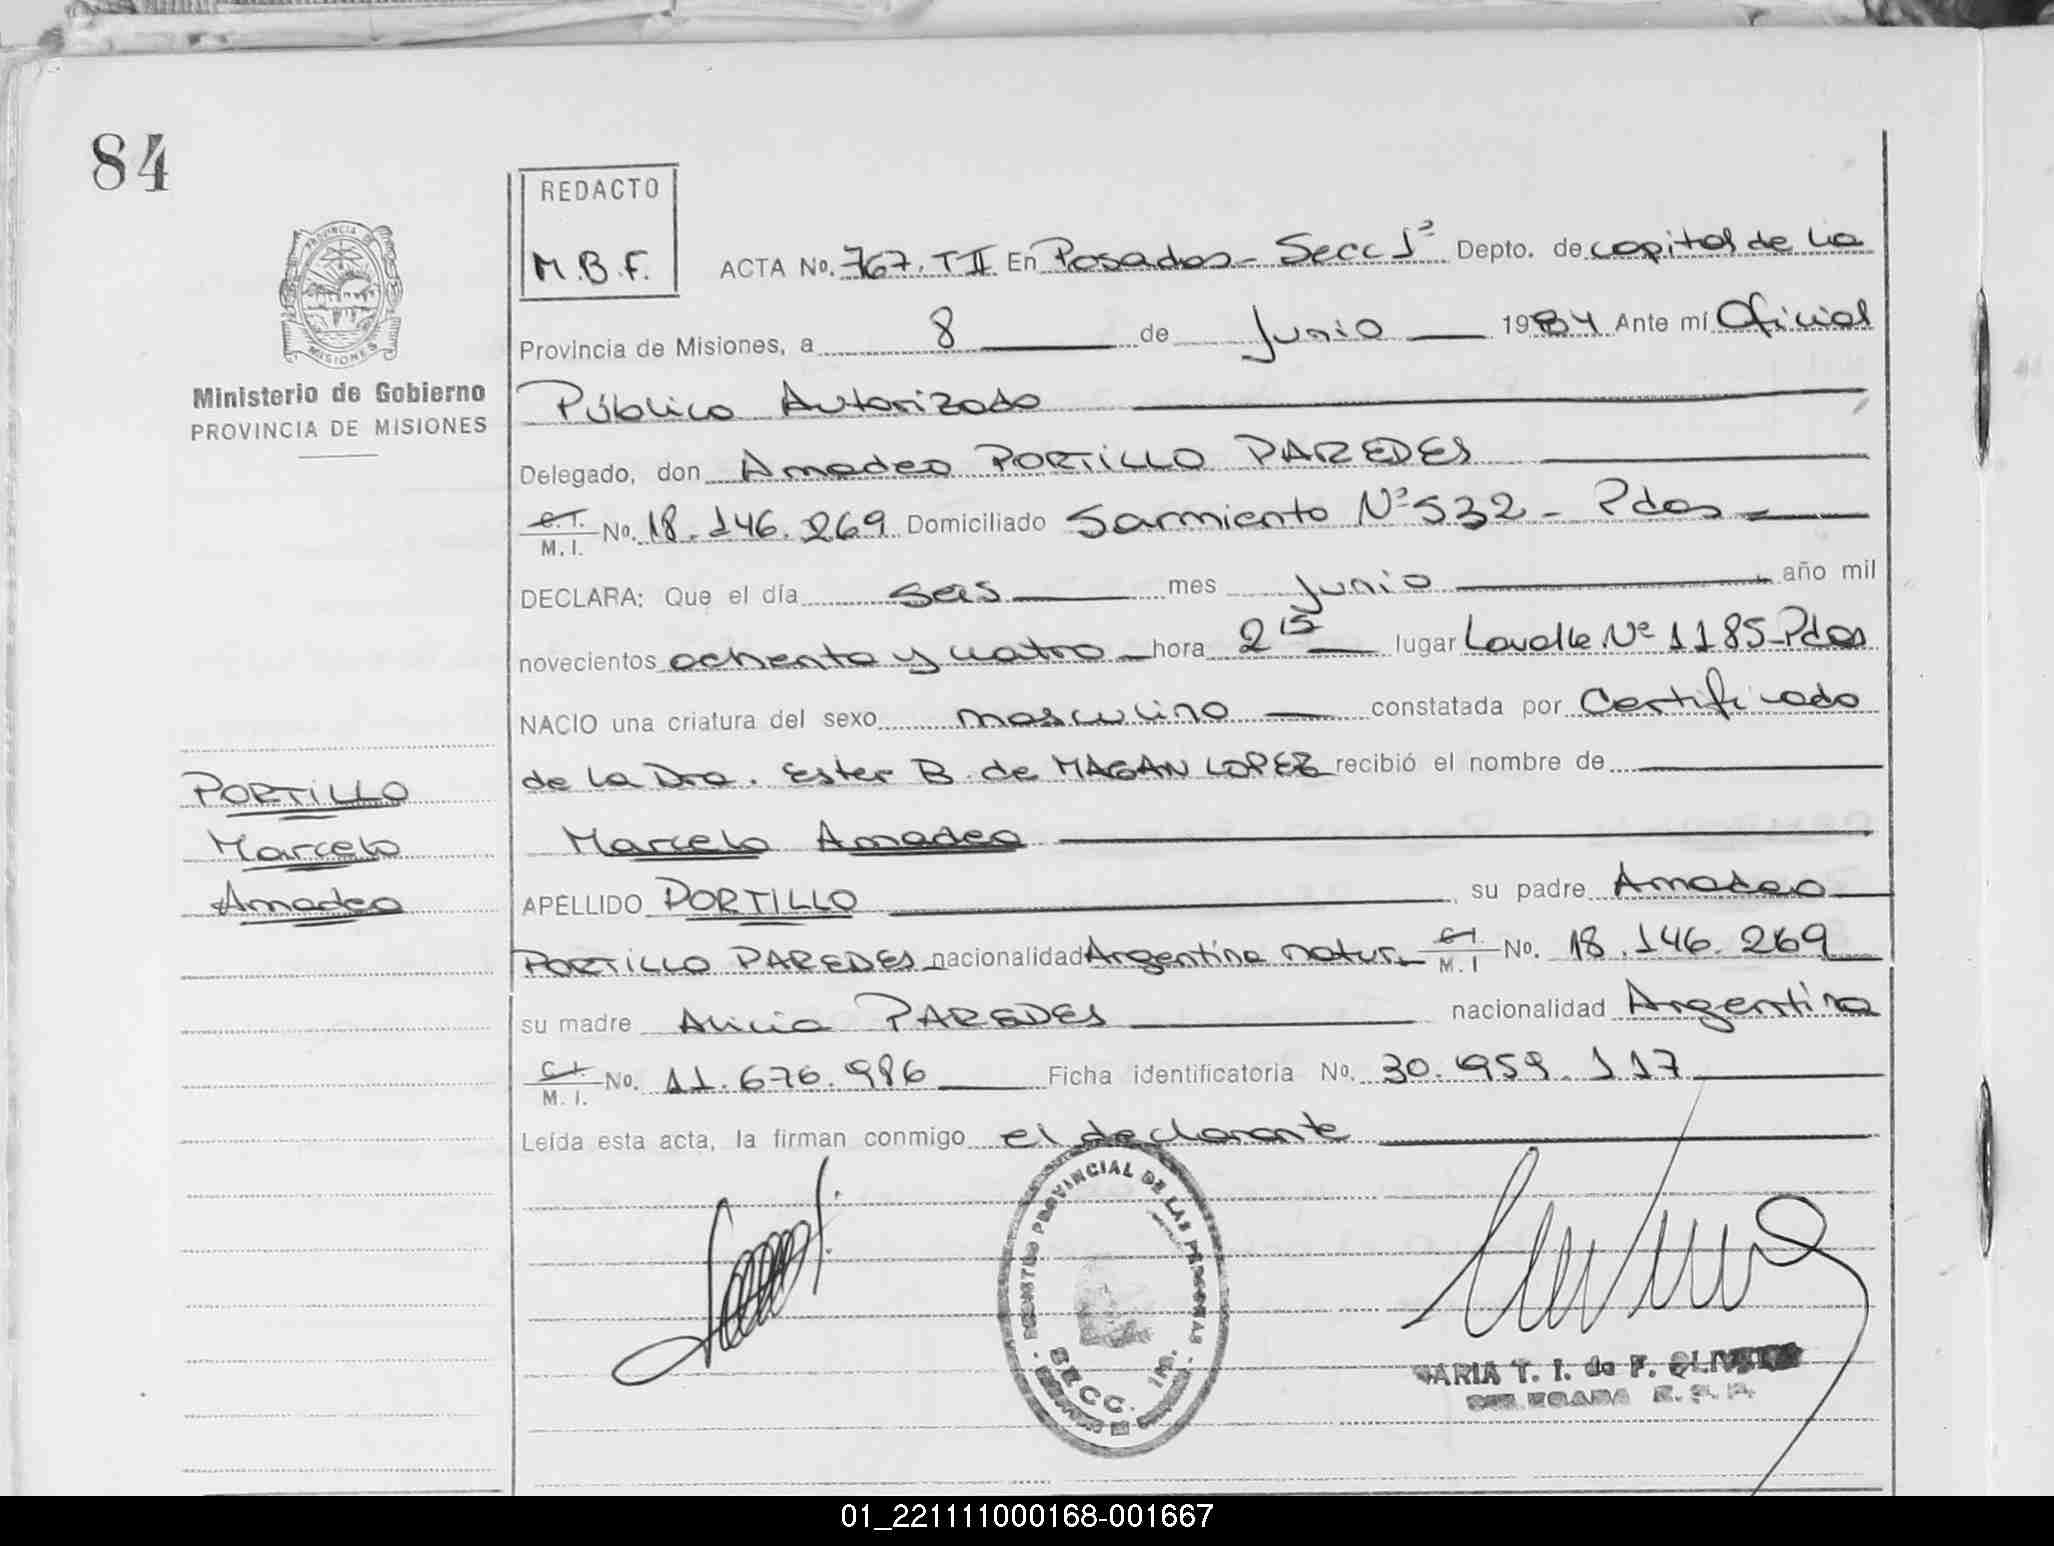 84
REDACTO
M.B.F.
ACTA No. 767. T II En Posadas - Secc 1ª Depto. de capital de la
Provincia de Misiones, a 8 de Junio 1984 Ante mí Oficial
Público Autorizado
Delegado, don Amadeo PORTILLO PAREDES
C.I. M.I. No. 18.146.269 Domiciliado Sarmiento Nº 532 - Pdas -
DECLARA: Que el día seis mes junio año mil
novecientos ochenta y cuatro hora 2 15 lugar Lavalle Nº 1185-Pdas
NACIO una criatura del sexo masculino constatada por Certificado
de la Dra. Ester B. de MAGAN LOPEZ recibió el nombre de
Marcelo Amadeo
APELLIDO PORTILLO su padre Amadeo
PORTILLO PAREDES nacionalidad Argentina natur. C.I. M.I No. 18.146.269
su madre Alicia PAREDES nacionalidad Argentina
C.I. M.I. No. 11.676.986 Ficha identificatoria No. 30.959.117
Leída esta acta, la firman conmigo el declarante
PROVINCIA DE
MISIONES
Ministerio de Gobierno
PROVINCIA DE MISIONES
PORTILLO
Marcelo
Amadeo
PROVINCIAL DE LAS PERSONAS
SECC. 1ra.
MARIA T. I. de F.
01_221111000168-001667